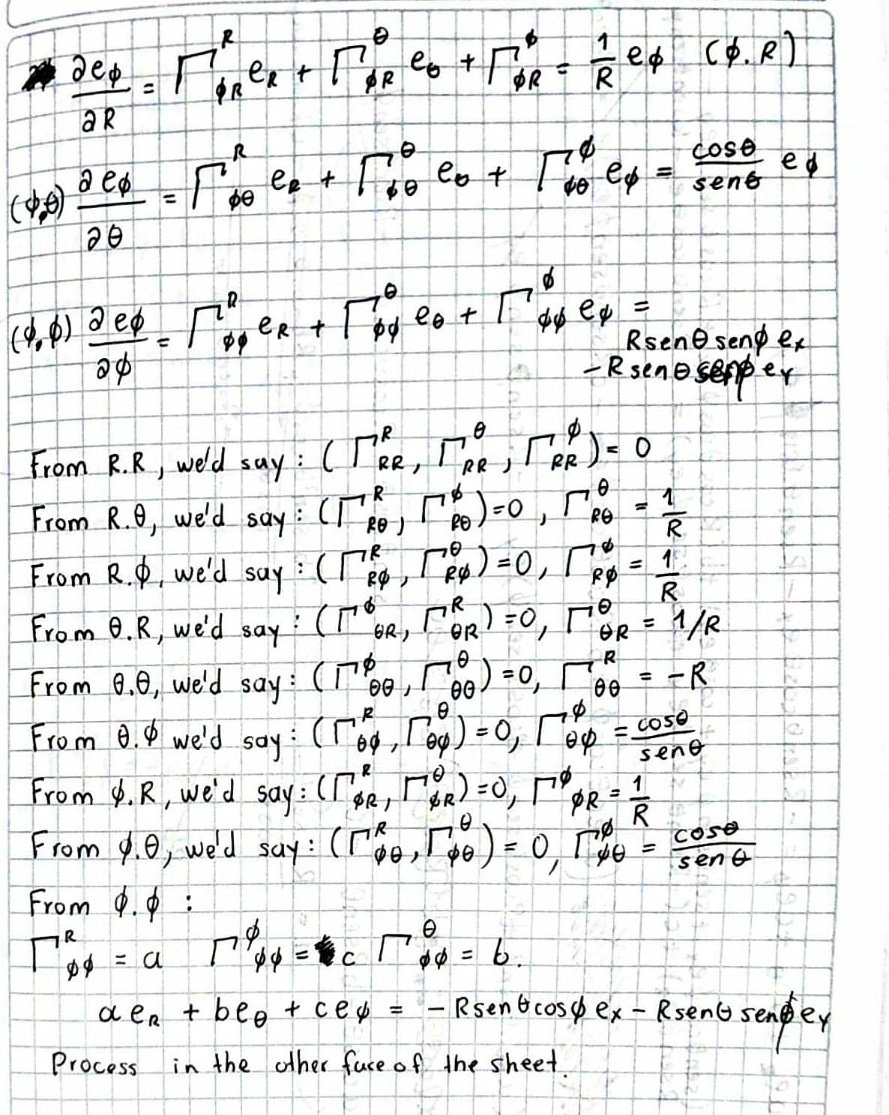 ∂eϕ/∂R = Γ^R_ϕR e_R + Γ^θ_ϕR e_θ + Γ^ϕ_ϕR = 1/R eϕ (ϕ.R)
(ϕ,θ) ∂eϕ/∂θ = Γ^R_ϕθ e_R + Γ^θ_ϕθ e_θ + Γ^ϕ_ϕθ eϕ = cosθ/senθ eϕ
(ϕ,ϕ) ∂eϕ/∂ϕ = Γ^R_ϕϕ e_R + Γ^θ_ϕϕ e_θ + Γ^ϕ_ϕϕ eϕ =
Rsenθsenϕ e_x
-Rsenθ e_y
From R.R, we'd say: (Γ^R_RR, Γ^θ_RR, Γ^ϕ_RR) = 0
From R.θ, we'd say: (Γ^R_Rθ, Γ^ϕ_Rθ)=0, Γ^θ_Rθ = 1/R
From R.ϕ, we'd say: (Γ^R_Rϕ, Γ^θ_Rϕ)=0, Γ^ϕ_Rϕ = 1/R
From θ.R, we'd say: (Γ^ϕ_θR, Γ^R_θR)=0, Γ^θ_θR = 1/R
From θ.θ, we'd say: (Γ^ϕ_θθ, Γ^θ_θθ)=0, Γ^R_θθ = -R
From θ.ϕ we'd say: (Γ^R_θϕ, Γ^θ_θϕ)=0, Γ^ϕ_θϕ = cosθ/senθ
From ϕ.R, we'd say: (Γ^R_ϕR, Γ^θ_ϕR)=0, Γ^ϕ_ϕR = 1/R
From ϕ.θ, we'd say: (Γ^R_ϕθ, Γ^θ_ϕθ) = 0, Γ^ϕ_ϕθ = cosθ/senθ
From ϕ.ϕ :
Γ^R_ϕϕ = a Γ^ϕ_ϕϕ = c Γ^θ_ϕϕ = b.
a e_R + b e_θ + c eϕ = -Rsenθcosϕ e_x - Rsenθ senϕ e_y
Process in the other face of the sheet.